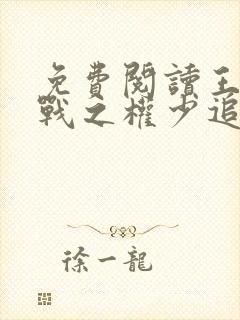 免費閱讀王
戰之權少追
徐一龍